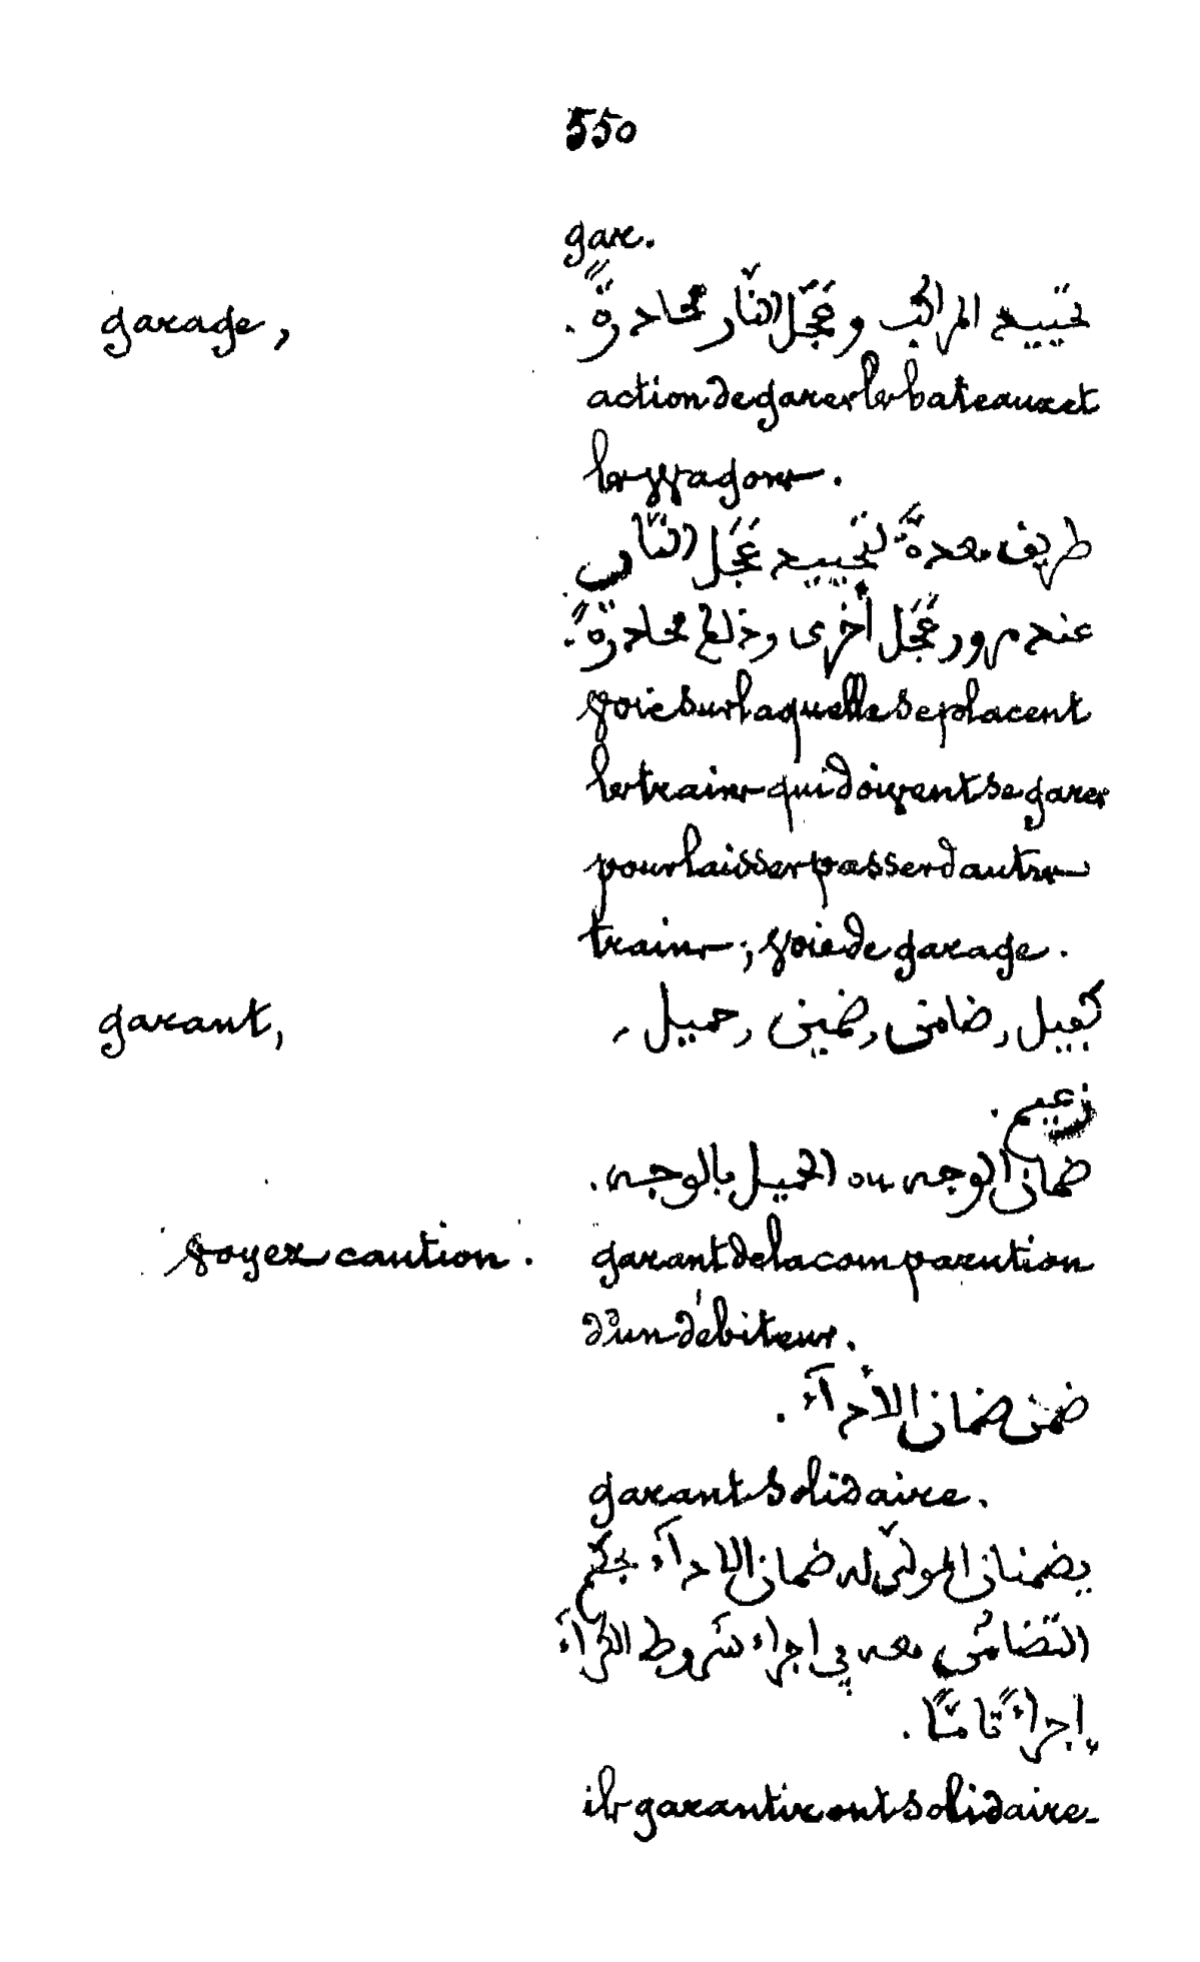 550
gare.
garage,
تحييد المراكب وعَجَل النّار محاددةً.
action de garer les bateaux et
les wagons.
طريق معدةً لتحييد عَجَل النّار
عند مرور عَجَل أخرى وذلك محاددةً.
voie sur laquelle se placent
les trains qui doivent se garer
pour laisser passer d'autres
trains; voie de garage.
garant,
كفيل, ضامن, ضمين, حميل,
زعيم.
ضمان الوجه ou الحميل بالوجه.
voyez caution. garant de la comparution
d'un débiteur.
ضمن ضمان الأدآء.
garant solidaire.
يضمنان المولّى له ضمان الادآء بحكم
التّضامُن معه في اجراء شروط الكرآء
إجراءً تامّاً.
ils garantiront solidaire-